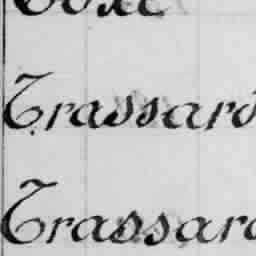 Trassard
Trassard